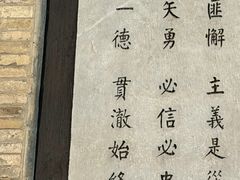 匪懈 主義是從
矢勇 必信必忠
一德 貫澈始終